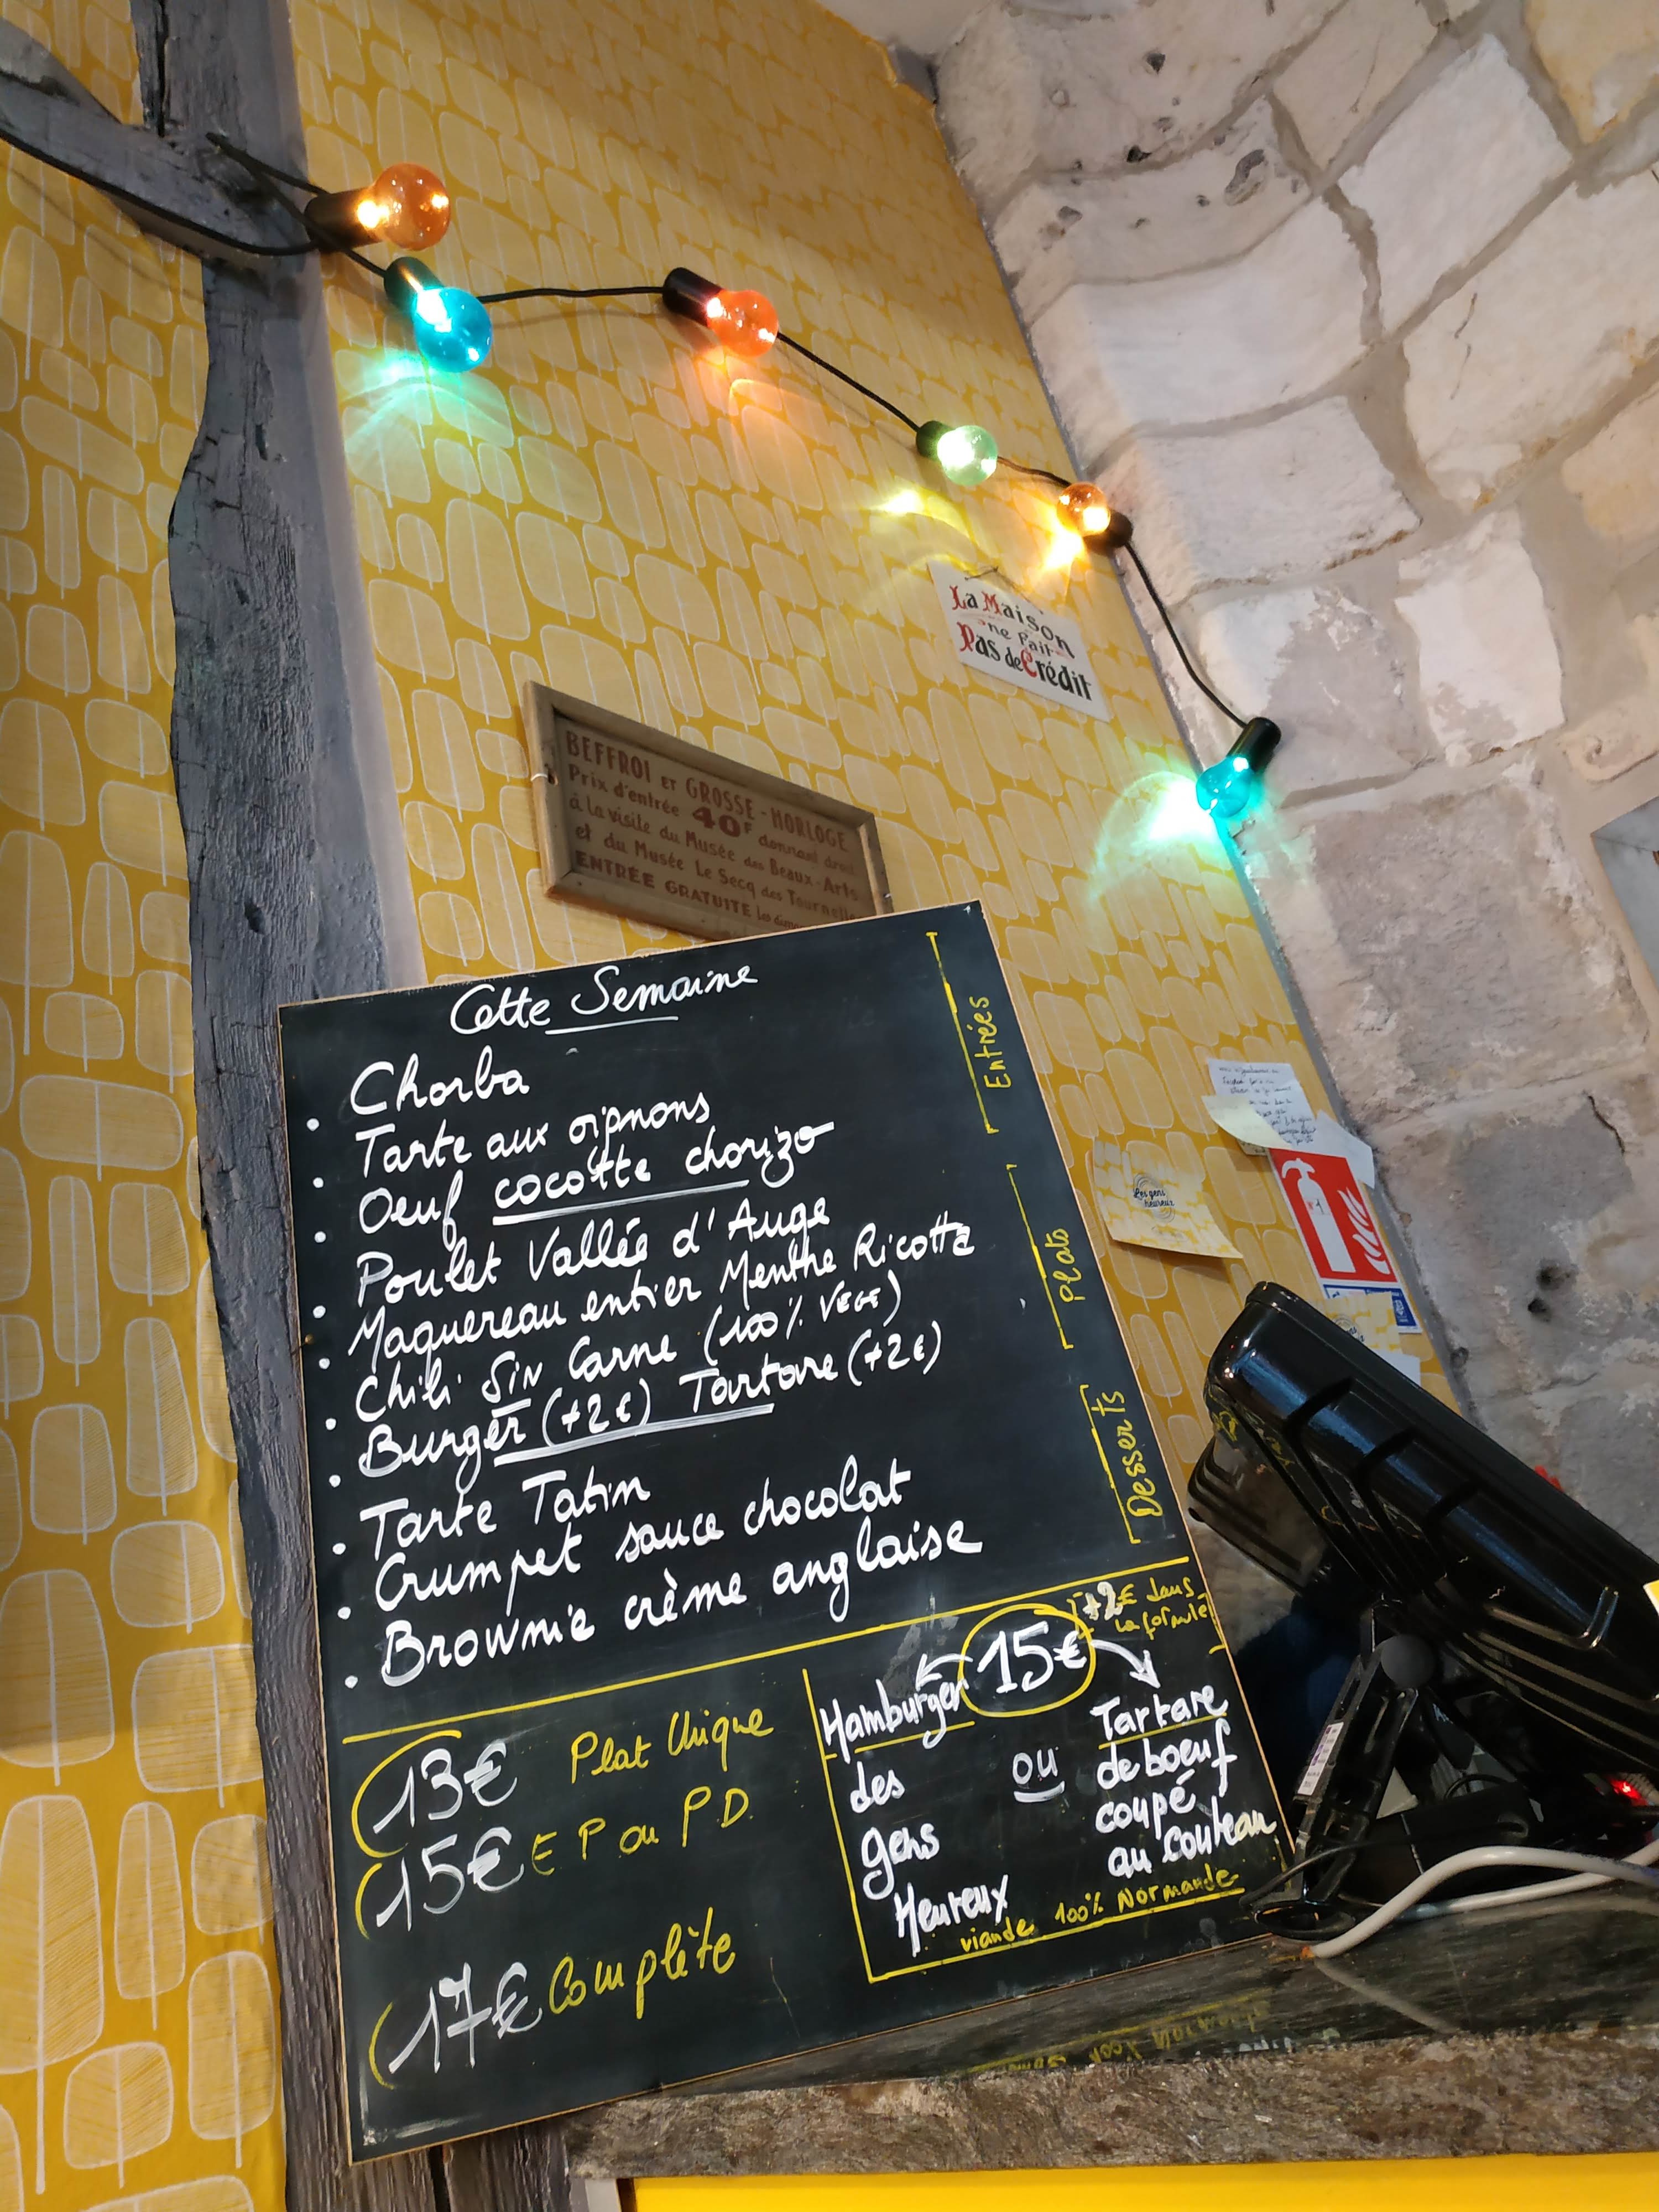 La Maison
ne fait
Pas de Crédit
BEFFROI ET GROSSE-HORLOGE
Prix d'entrée 40F donnant droit
à la visite du Musée des Beaux-Arts
et du Musée Le Secq des Tournelles
ENTRÉE GRATUITE les
Cette Semaine
Entrées
• Chorba
• Tarte aux oignons
• Oeuf cocotte chorizo
Plats
• Poulet Vallée d'Auge
• Maquereau entier Menthe Ricotta
• Chili SIN Carne (100% VEGE)
• Burger (+2€) Tartare (+2€)
Desserts
• Tarte Tatin
• Crumpet sauce chocolat
• Brownie crème anglaise
13€ Plat Unique
15€ E P ou P D
17€ Complète
15€
+2€ dans
la formule
Hamburger
des
gens
Heureux
ou
Tartare
de boeuf
coupé
au couteau
viande 100% Normande
Les gens
heureux
N°1